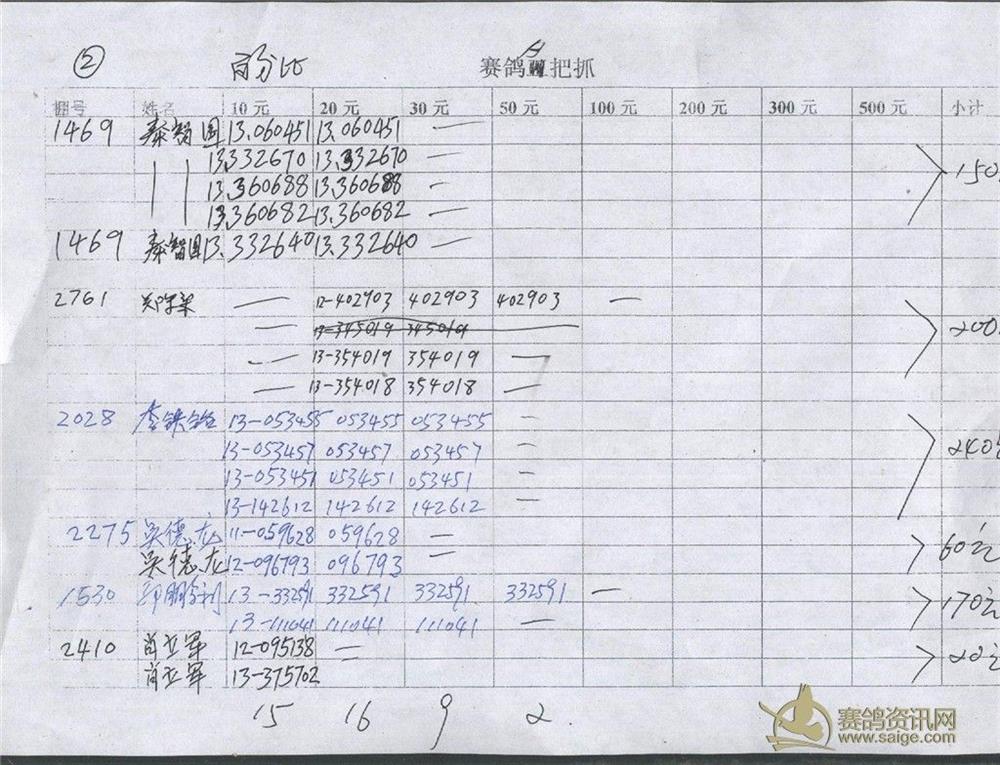 ② 百分比 赛鸽 把抓
棚号 姓名 10 元 20 元 30 元 50 元 100 元 200 元 300 元 500 元 小计
1469 秦智国 13.060451 13.060451 —
13.332670 13.332670 —
13.360688 13.360688 — 150
13.360682 13.360682 —
1469 秦智国 13.332640 13.332640 —
2761 — 12-402903 402903 402903 —
— 13-345019 345019 200
— 13-354019 354019 —
— 13-354018 354018 —
2028 李铁 13-053455 053455 053455 —
13-053457 053457 053457 — 240
13-053451 053451 053451 —
13-142612 142612 142612 —
2275 吴德龙 11-059628 059628 — 60元
吴德龙 12-096793 096793 —
1530 郭鹏利 13-332591 332591 332591 332591 — 170元
13-111041 111041 111041 —
2410 肖立军 12-095138 — 20元
肖立军 13-375702
15 16 9 2
赛鸽资讯网
www.saige.com